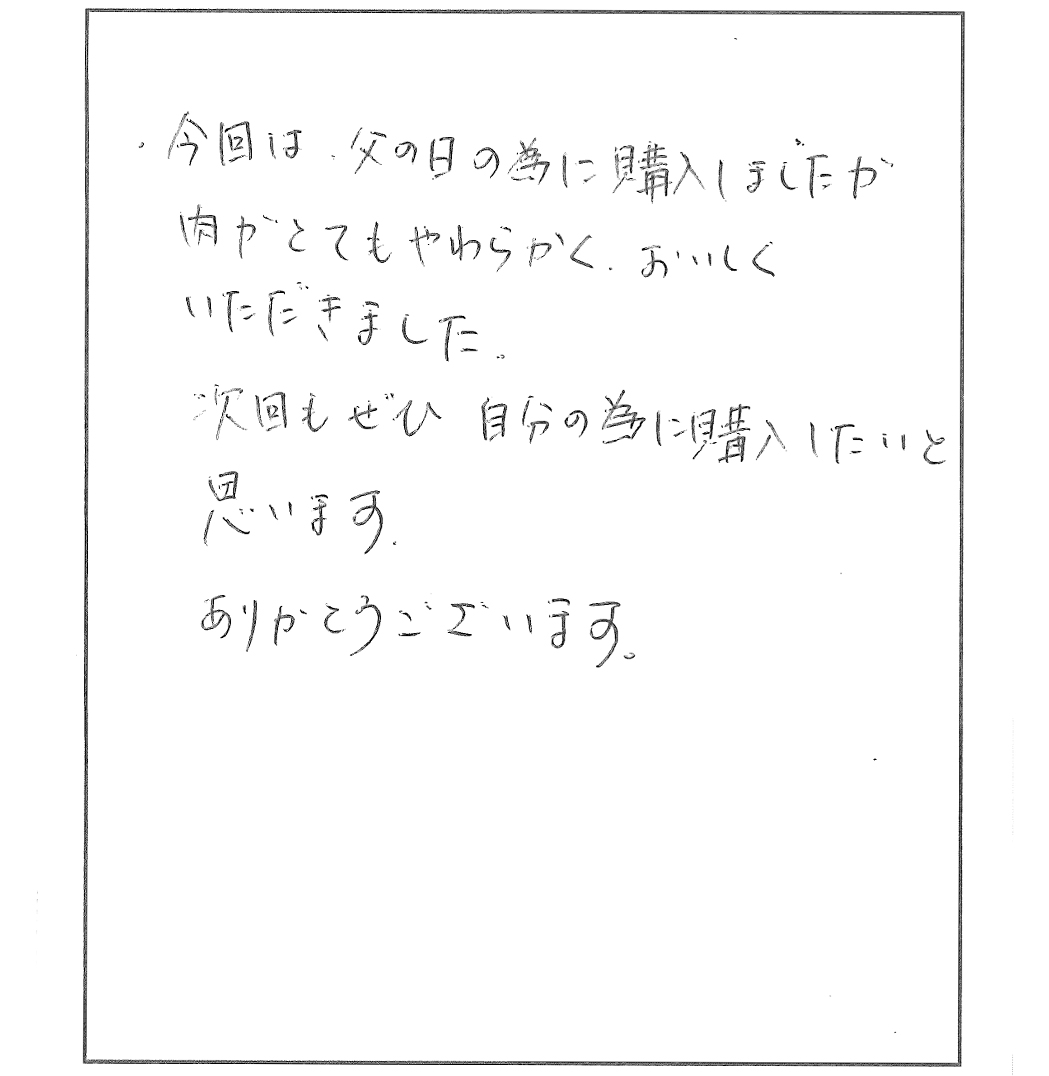 ・今回は、父の日の為に購入しましたが
肉がとてもやわらかく、おいしく
いただきました。
次回もぜひ 自分の為に購入したいと
思います。
ありがとうございます。